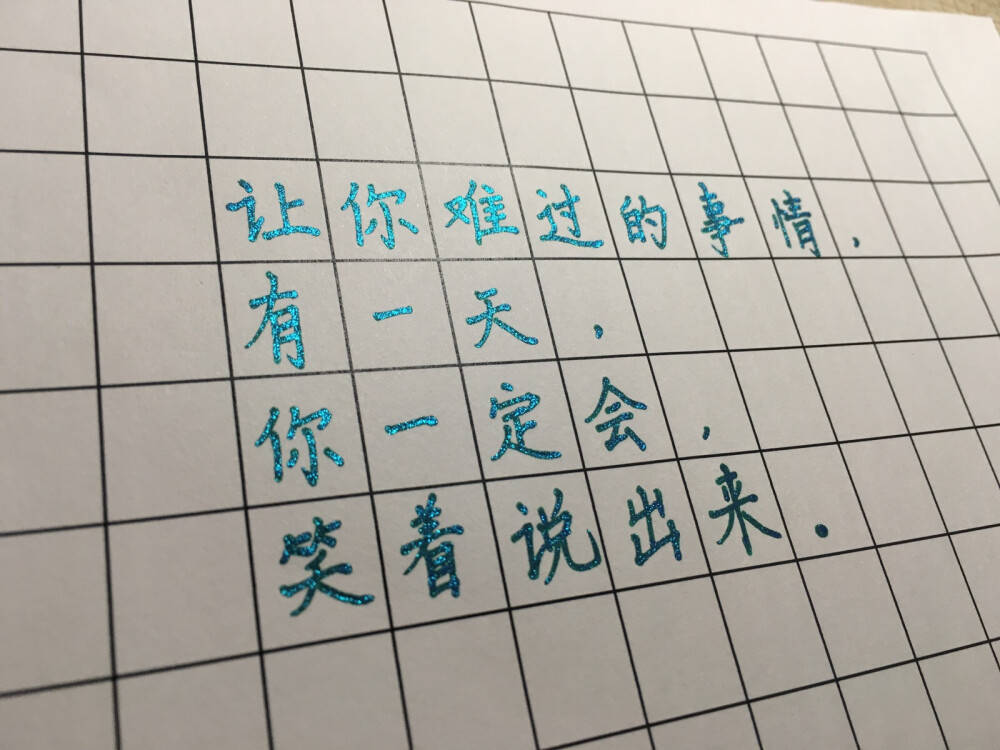 让你难过的事情，
有一天，
你一定会，
笑着说出来.